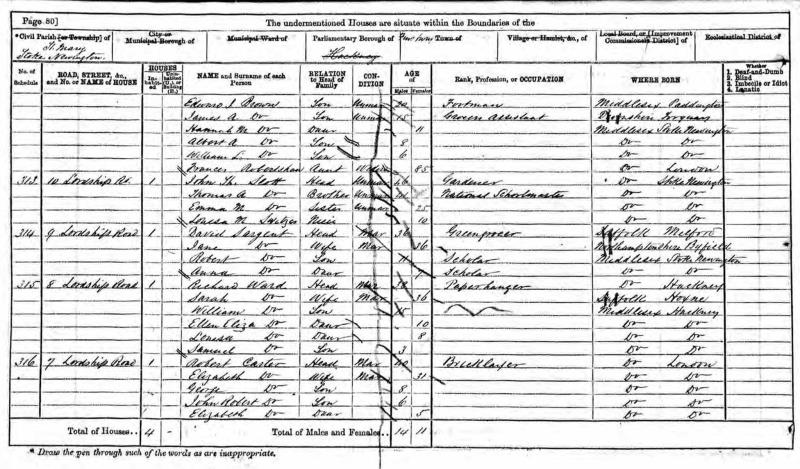 Page 80] The undermentioned Houses are situate within the Boundaries of the
*Civil Parish [or Township] of City or Municipal Borough of Municipal Ward of Parliamentary Borough of Town of Village or Hamlet, &c., of Local Board, or [Improvement Commissioners District] of Ecclesiastical District of
St. Mary Stoke Newington Hackney
No. of Schedule ROAD, STREET, &c., and No. or NAME of HOUSE HOUSES Inhabited Uninhabited (U.), or Building (B.) NAME and Surname of each Person RELATION to Head of Family CONDITION AGE of Males Females Rank, Profession, or OCCUPATION WHERE BORN Whether 1. Deaf-and-Dumb 2. Blind 3. Imbecile or Idiot 4. Lunatic
Edward J. Brown Son Unmar 20 Footman Middlesex Paddington
James A. Do Son Unmar 15 Grocers assistant Devonshire Torquay
Hannah M. Do Daur 11 Middlesex Stoke Newington
Albert A. Do Son 8 Do Do
William L. Do Son 6 Do Do
Frances Robertshaw Aunt Widow 85 Do London
313 10 Lordship Rd. 1 John Th. Scott Head Unmar 46 Gardener Do Stoke Newington
Thomas A. Do Brother Unmar National Schoolmaster Do Do
Emma M. Do Sister Unmar 25 Do Do
Louisa M. Niece 10 Do Do
314 9 Lordship Road 1 David Sargent Head Mar 36 Greengrocer Suffolk Melford
Jane Do Wife Mar 36 Northamptonshire Byfield
Robert Do Son 11 Scholar Middlesex Stoke Newington
Anna Do Daur Scholar Do Do
315 8 Lordship Road 1 Richard Ward Head Mar 38 Paperhanger Do Hackney
Sarah Do Wife Mar 36 Suffolk Hoxne
William Do Son 15 Middlesex Hackney
Ellen Eliza Do Daur 10 Do Do
Louisa Do Daur 8 Do Do
Samuel Do Son 3 Do Do
316 7 Lordship Road 1 Robert Carter Head Mar 40 Bricklayer Do London
Elizabeth Do Wife Mar 31 Do Do
George Do Son 8 Do Do
John Robert Do Son 6 Do Do
Elizabeth Do Daur 5 Do Do
Total of Houses.. 4 - Total of Males and Females.. 14 11
* Draw the pen through such of the words as are inappropriate.